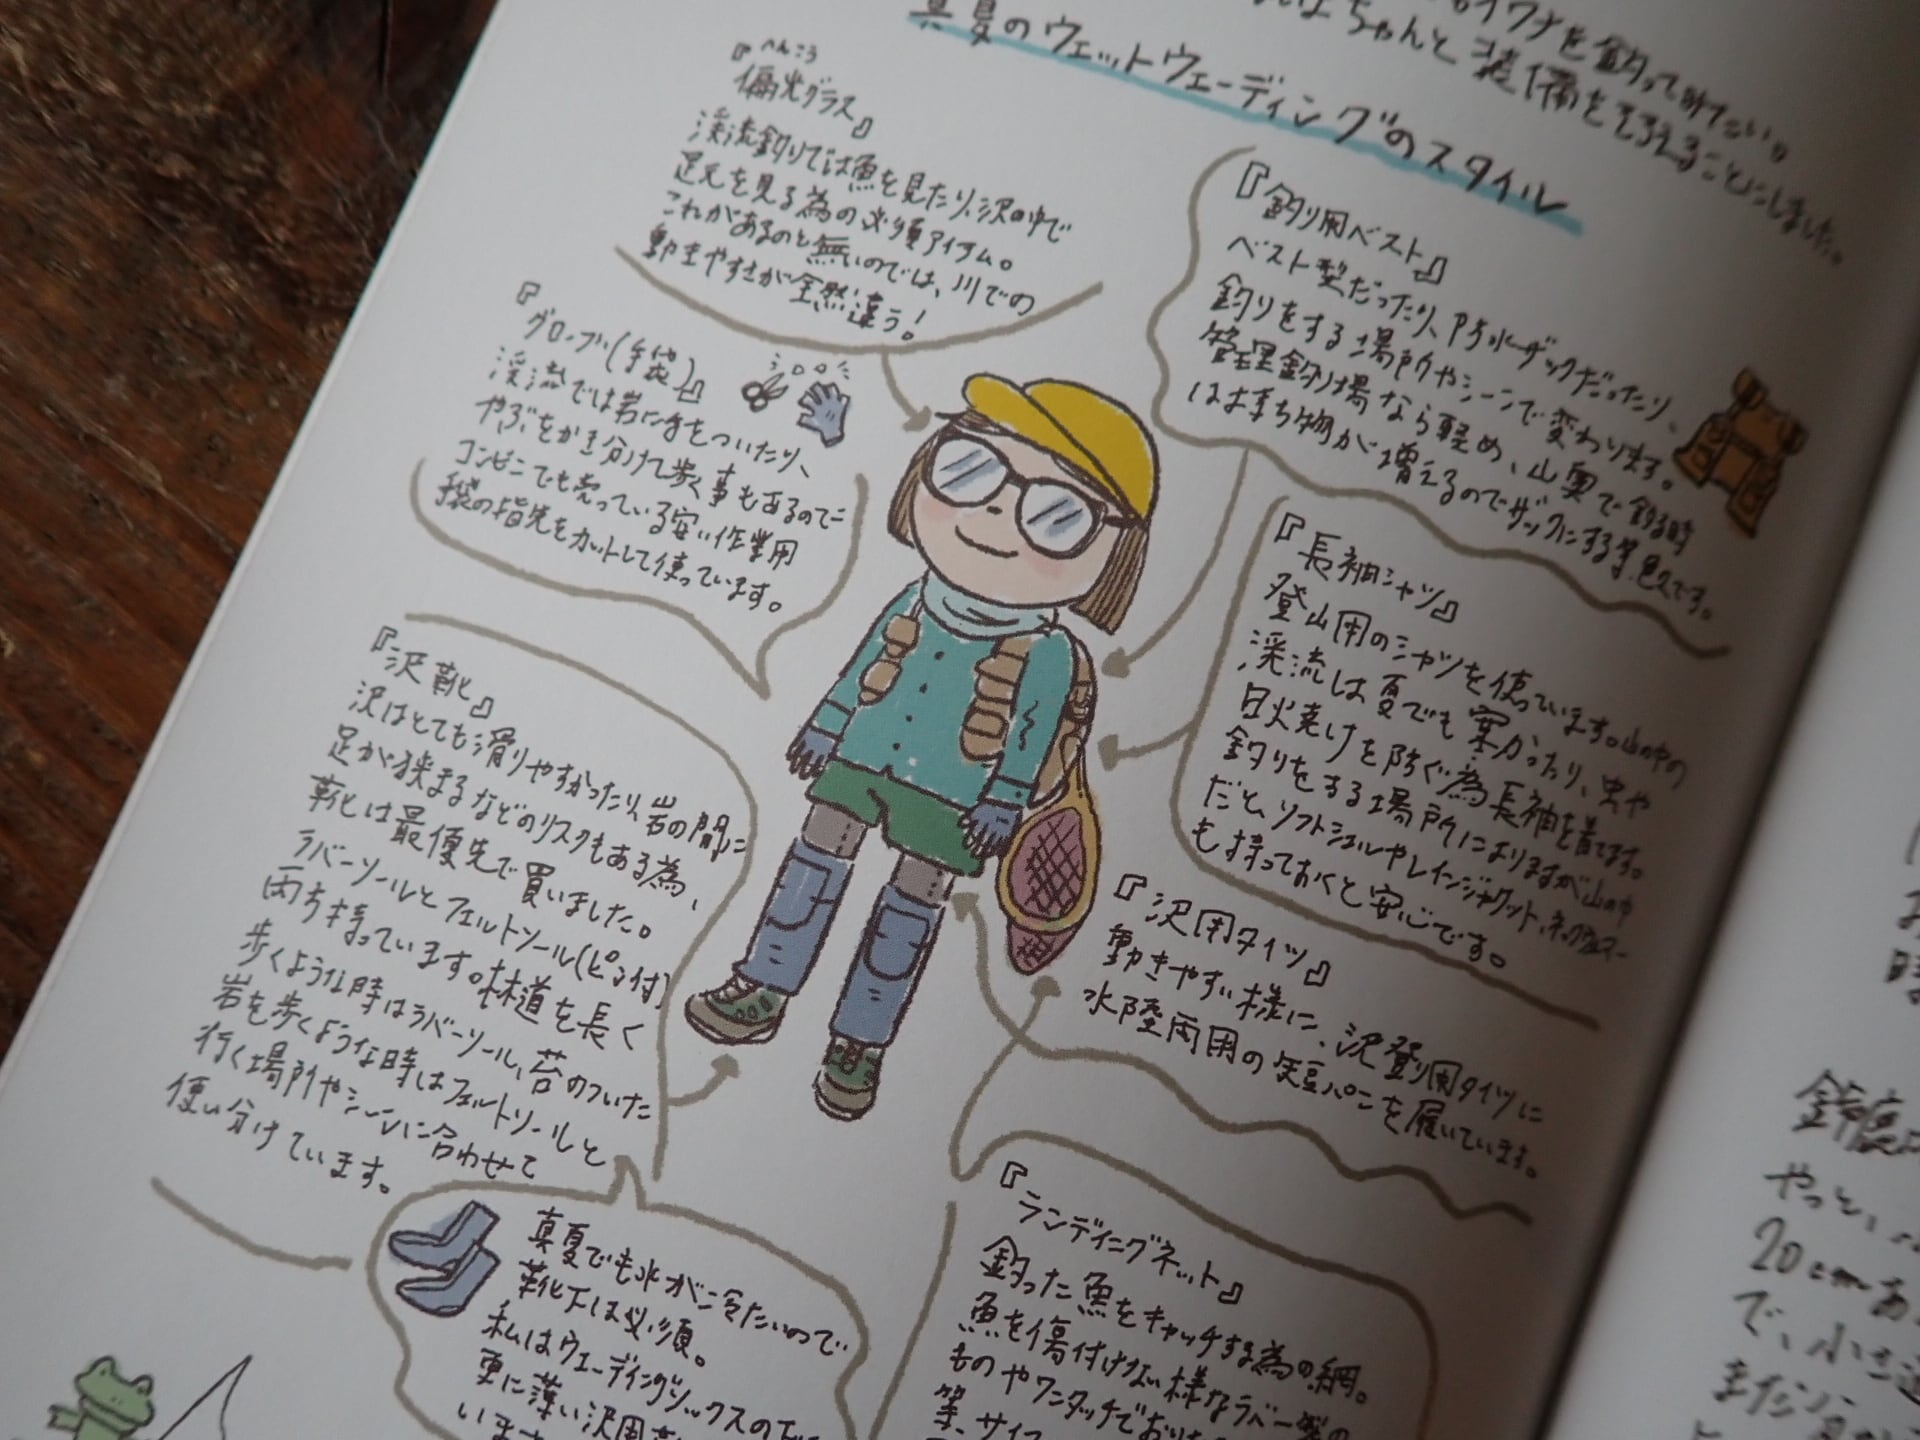 イワナを釣ってみたい。
ちゃんと装備をそろえることにしました。
真夏のウェットウェーディングのスタイル
へんこう
『偏光グラス』
渓流釣りでは魚を見たり、沢の中で
足元を見る為の必須アイテム。
これがあるのと無いのでは、川での
動きやすさが全然違う!
『グローブ(手袋)』
渓流では岩に手をついたり、
やぶをかき分けて歩く事もあるので
コンビニでも売っている安い作業用
手袋の指先をカットして使っています。
『沢靴』
沢はとても滑りやすかったり、岩の間に
足が狭まるなどのリスクもある為、
靴は最優先で買いました。
ラバーソールとフェルトソール(ピン付)
両方持っています。林道を長く
歩くような時はラバーソール、苔のついた
岩を歩くような時はフェルトソールと
行く場所やシーンに合わせて
使い分けています。
真夏でも水が冷たいので
靴下は必須。
私はウェーディングソックスの
更に薄い沢用
『釣り用ベスト』
ベスト型だったり、防水ザックだったり、
釣りをする場所やシーンで変わります。
管理釣り場なら軽め、山奥で釣る時
は持ち物が増えるのでザックにする等色々です。
『長袖シャツ』
登山用のシャツを使っています。山の中の
渓流は夏でも寒かったり、虫や
日火焼けを防ぐ為長袖を着てます。
釣りをする場所によりますが山の中
だと、ソフトシェルやレインジャケット、ネックウォーマー
も持っておくと安心です。
『沢用タイツ』
動きやすい様に、沢登り用タイツに
水陸両用の短パンを履いています。
『ランディングネット』
釣った魚をキャッチする為の網。
魚を傷付けない様なラバー製の
ものやワンタッチで
等、サイズ
やっと、
20cm
で、小さ
まだ